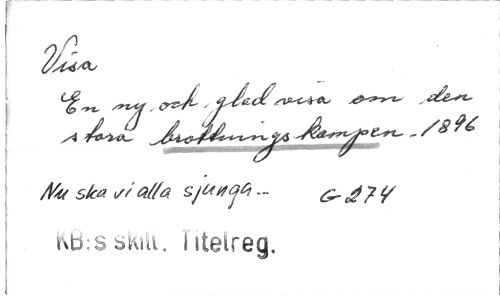 Visa
En ny och glad visa om den
stora brottningskampen. 1896
Nu ska vi alla sjunga... G 274
KB:s skill. Titelreg.